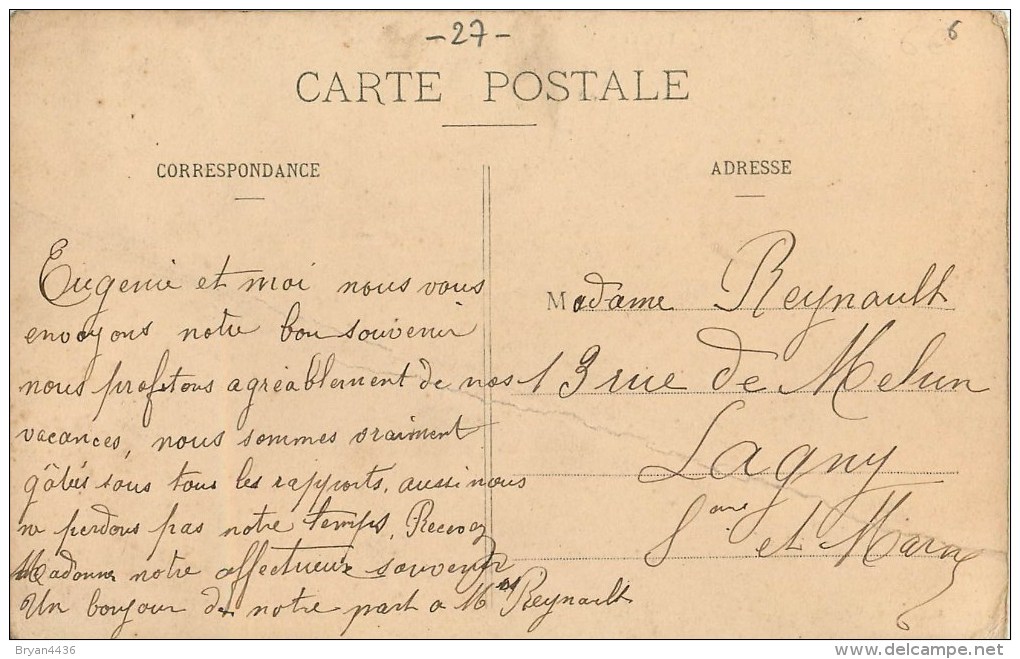 -27-
6
CARTE POSTALE
CORRESPONDANCE
Eugenie et moi nous vous
envoyons notre bon souvenir
nous profitons agréablement de nos
vacances, nous sommes vraiment
gâtés sous tous les rapports, aussi nous
ne perdons pas notre temps, Recevez
Madame notre affectueux souvenir
Un bonjour de notre part a Mr Reynault
ADRESSE
Madame Reynault
13 rue de Melun
Lagny
Seine et Marne
Bryan4436
www.delcampe.net